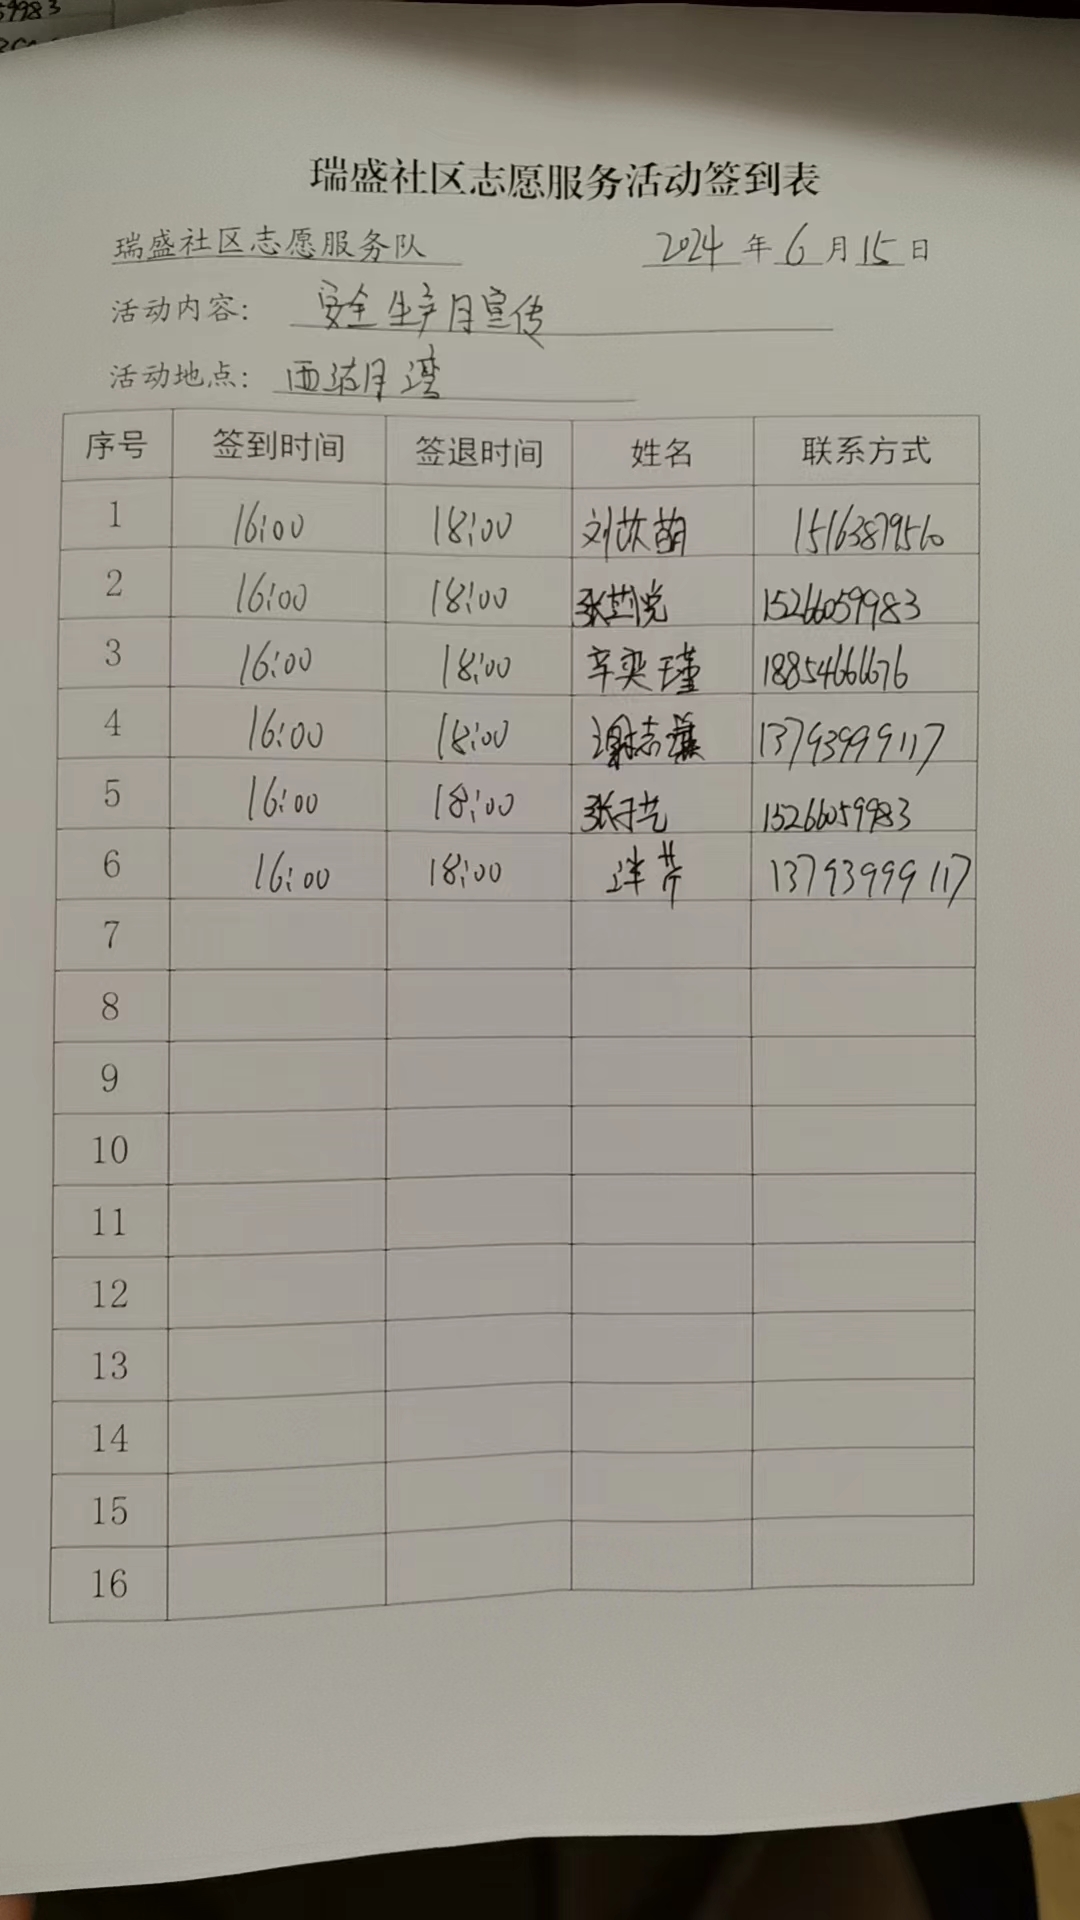 59983
瑞盛社区志愿服务活动签到表
瑞盛社区志愿服务队 2024年6月15日
活动内容: 安全生产月宣传
活动地点: 西湖月湾
序号 签到时间 签退时间 姓名 联系方式
1 16:00 18:00 刘苡萌 15163879560
2 16:00 18:00 张 悦 15266059983
3 16:00 18:00 辛奕瑾 18854666676
4 16:00 18:00 谢志 13793999117
5 16:00 18:00 张于艺 15266059983
6 16:00 18:00 芹 13793999117
7
8
9
10
11
12
13
14
15
16